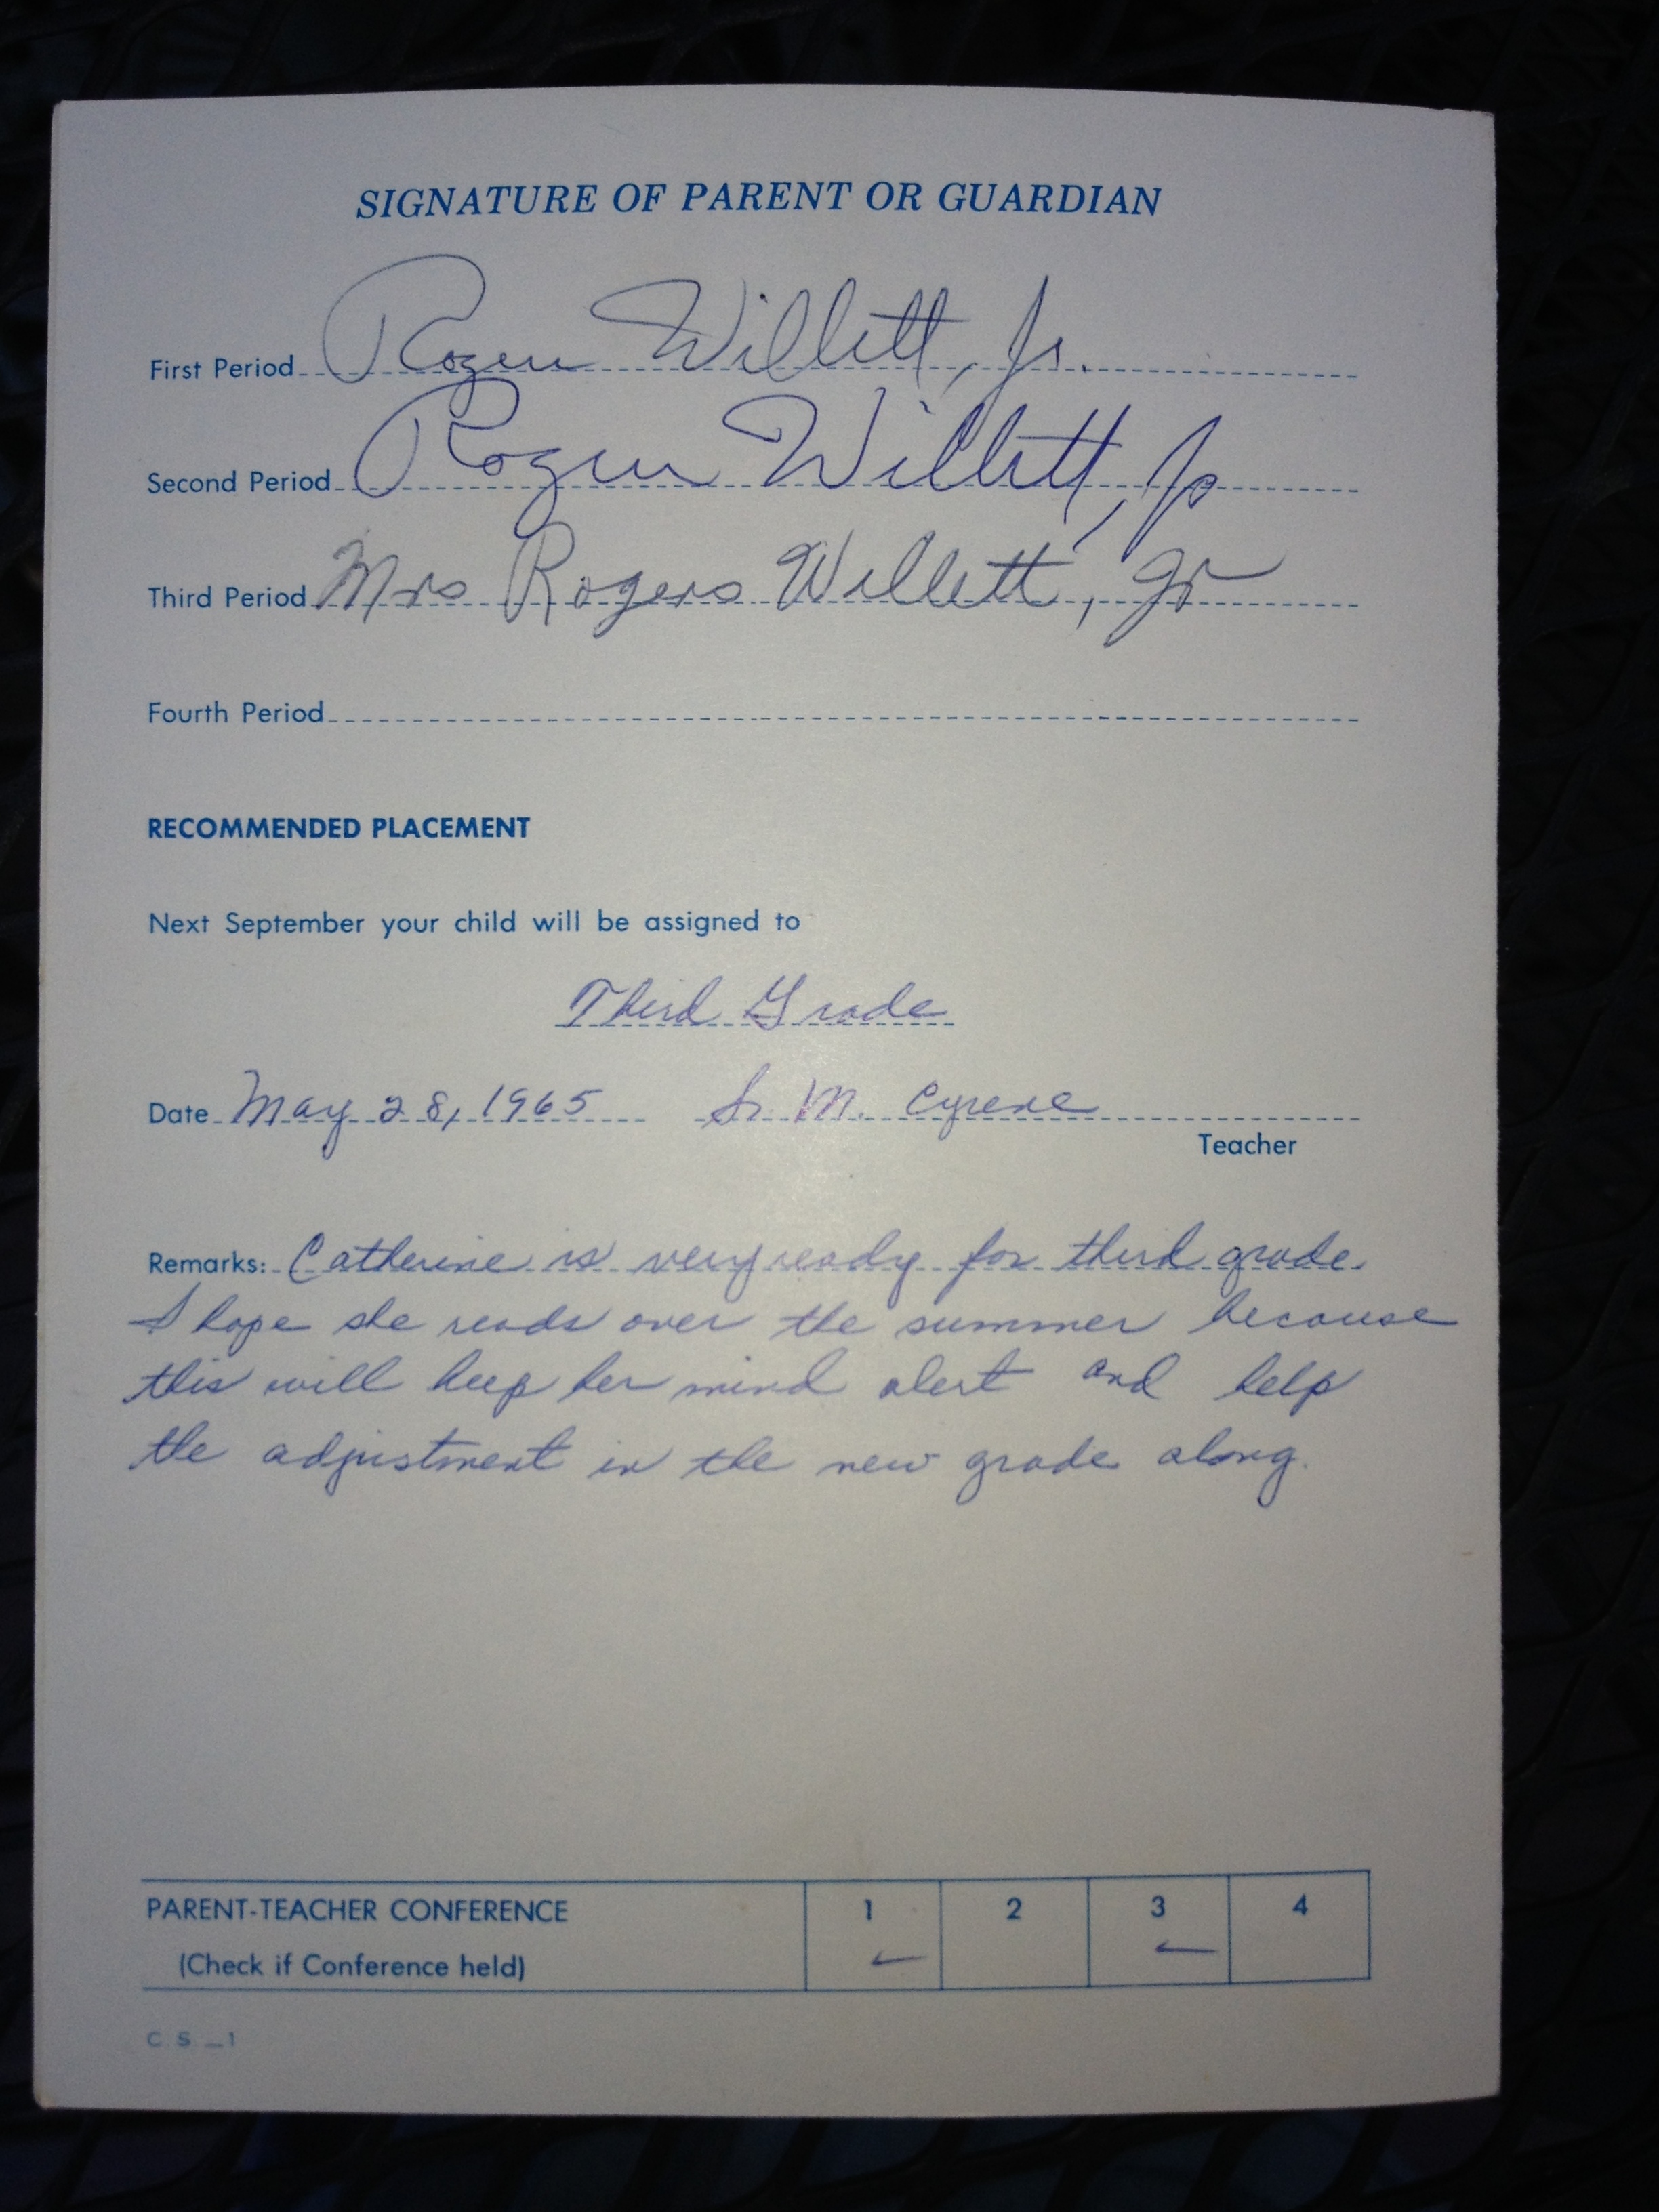 SIGNATURE OF PARENT OR GUARDIAN
First Period Rogers Willett, Jr.
Second Period Rogers Willett, Jr
Third Period Mrs Rogers Willett, Jr
Fourth Period
RECOMMENDED PLACEMENT
Next September your child will be assigned to
Third Grade
Date May 28, 1965 Sr. M. Cyrene
Teacher
Remarks: Catherine is very ready for third grade.
I hope she reads over the summer because
this will keep her mind alert and help
the adjustment in the new grade along.
PARENT-TEACHER CONFERENCE 1 2 3 4
(Check if Conference held) ✓ ✓
C S _ 1